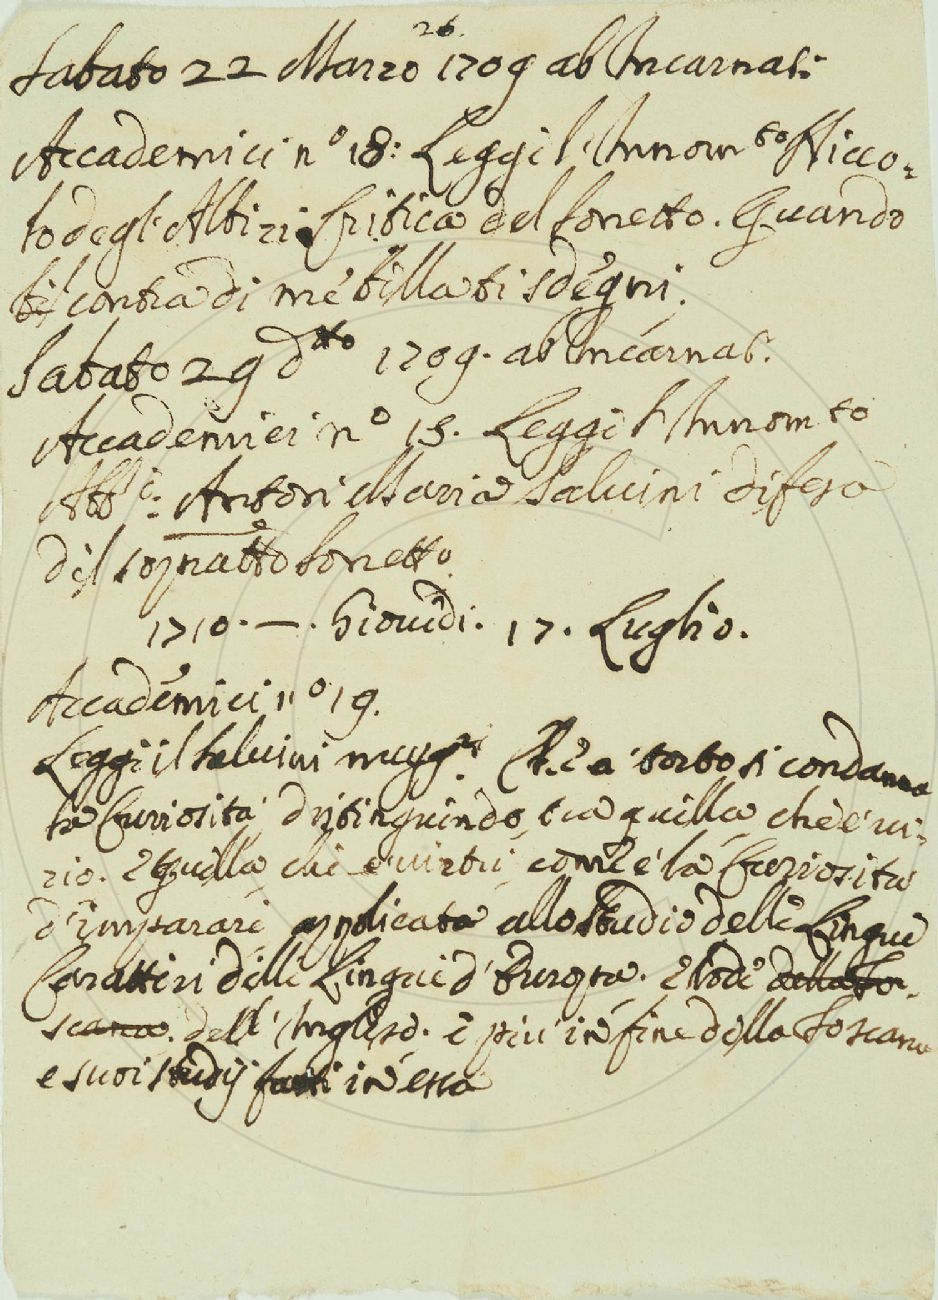 26.
Sabato 22 Marzo 1709 ab Incarnat:
Accademici n.º 18: Leggè l'Innom.to Nicco-
lo degl'Albizi Critica del Sonetto. Quando
bil contra di mè bella ti sdegni.
Sabato 29 d.tto 1709. ab Incarnat.
Accademici n.º 15. Leggè l'Innom.to
Anton Maria Salvini difesa
del sopradetto Sonetto.
1710. — . Giovedi. 17. Luglio.
Accademici n.º 19.
Leggè il Salvini Che a torto si condanna
la Curiosità distinguendo tra quella che è vi-
zio. e quella che è virtù come è la Curiosità
d'imparare applicata allo Studio delle Lingue
Caratteri delle Lingue d'Europa. e lode della To-
scana. dell'Inglese. e più in fine della Toscana
e suoi studij fatti in essa